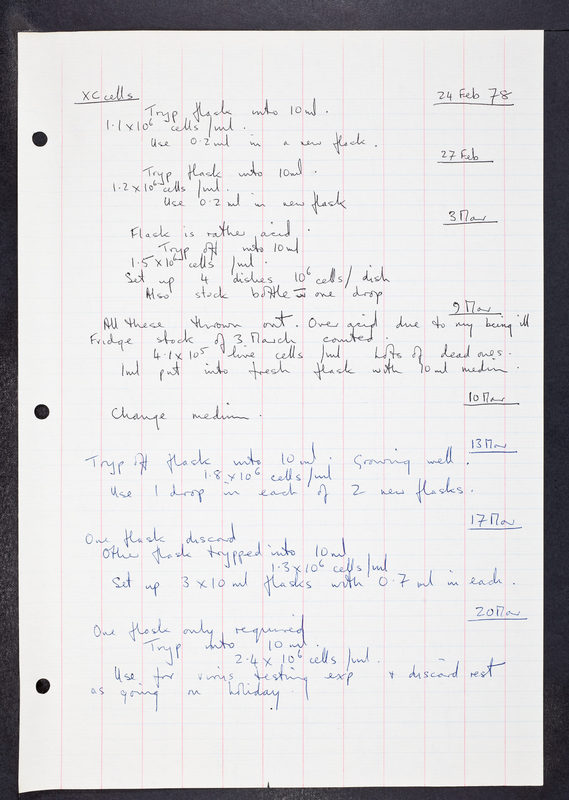 XC cells
24 Feb 78
Tryp flask into 10ml.
1.1x10⁶ cells/ml.
Use 0.2ml in a new flask.
27 Feb
Tryp flask into 10ml.
1.2x10⁶ cells/ml.
Use 0.2 ml in new flask
3 Mar
Flask is rather acid.
Tryp off into 10ml
1.5x10⁶ cells/ml.
Set up 4 dishes 10⁶ cells/dish
Also stock bottle one drop
9 Mar
All these thrown out. Over acid due to my being ill
Fridge stock of 3 March counted.
4.1x10⁵ live cells/ml lots of dead ones.
1ml put into fresh flask with 10ml medium.
10 Mar
Change medium.
13 Mar
Tryp off flask into 10ml. Growing well.
1.8x10⁶ cells/ml
Use 1 drop in each of 2 new flasks.
17 Mar
One flask discard
Other flask trypped into 10ml
1.3x10⁶ cells/ml
Set up 3x10ml flasks with 0.7 ml in each.
20 Mar
One flask only required
Tryp into 10ml.
2.4x10⁶ cells/ml.
Use for virus testing exp & discard rest
as going on holiday.